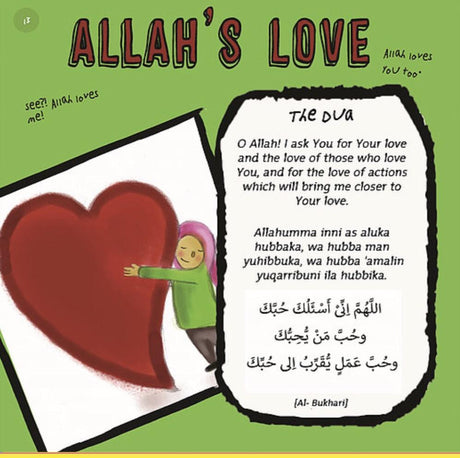 13
ALLAH'S LOVE
Allah loves
YOU too.
see?! Allah loves
me!
The Dua
O Allah! I ask You for Your love
and the love of those who love
You, and for the love of actions
which will bring me closer to
Your love.
Allahumma inni as aluka
hubbaka, wa hubba man
yuhibbuka, wa hubba 'amalin
yuqarribuni ila hubbika.
اللَّهُمَّ اِنِّىْ أَسْئَلُكَ حُبَّكَ
وحُبَّ مَنْ يُّحِبُّكَ
وحُبَّ عَمَلٍ يُّقَرِّبُ اِلى حُبِّكَ
[Al- Bukhari]